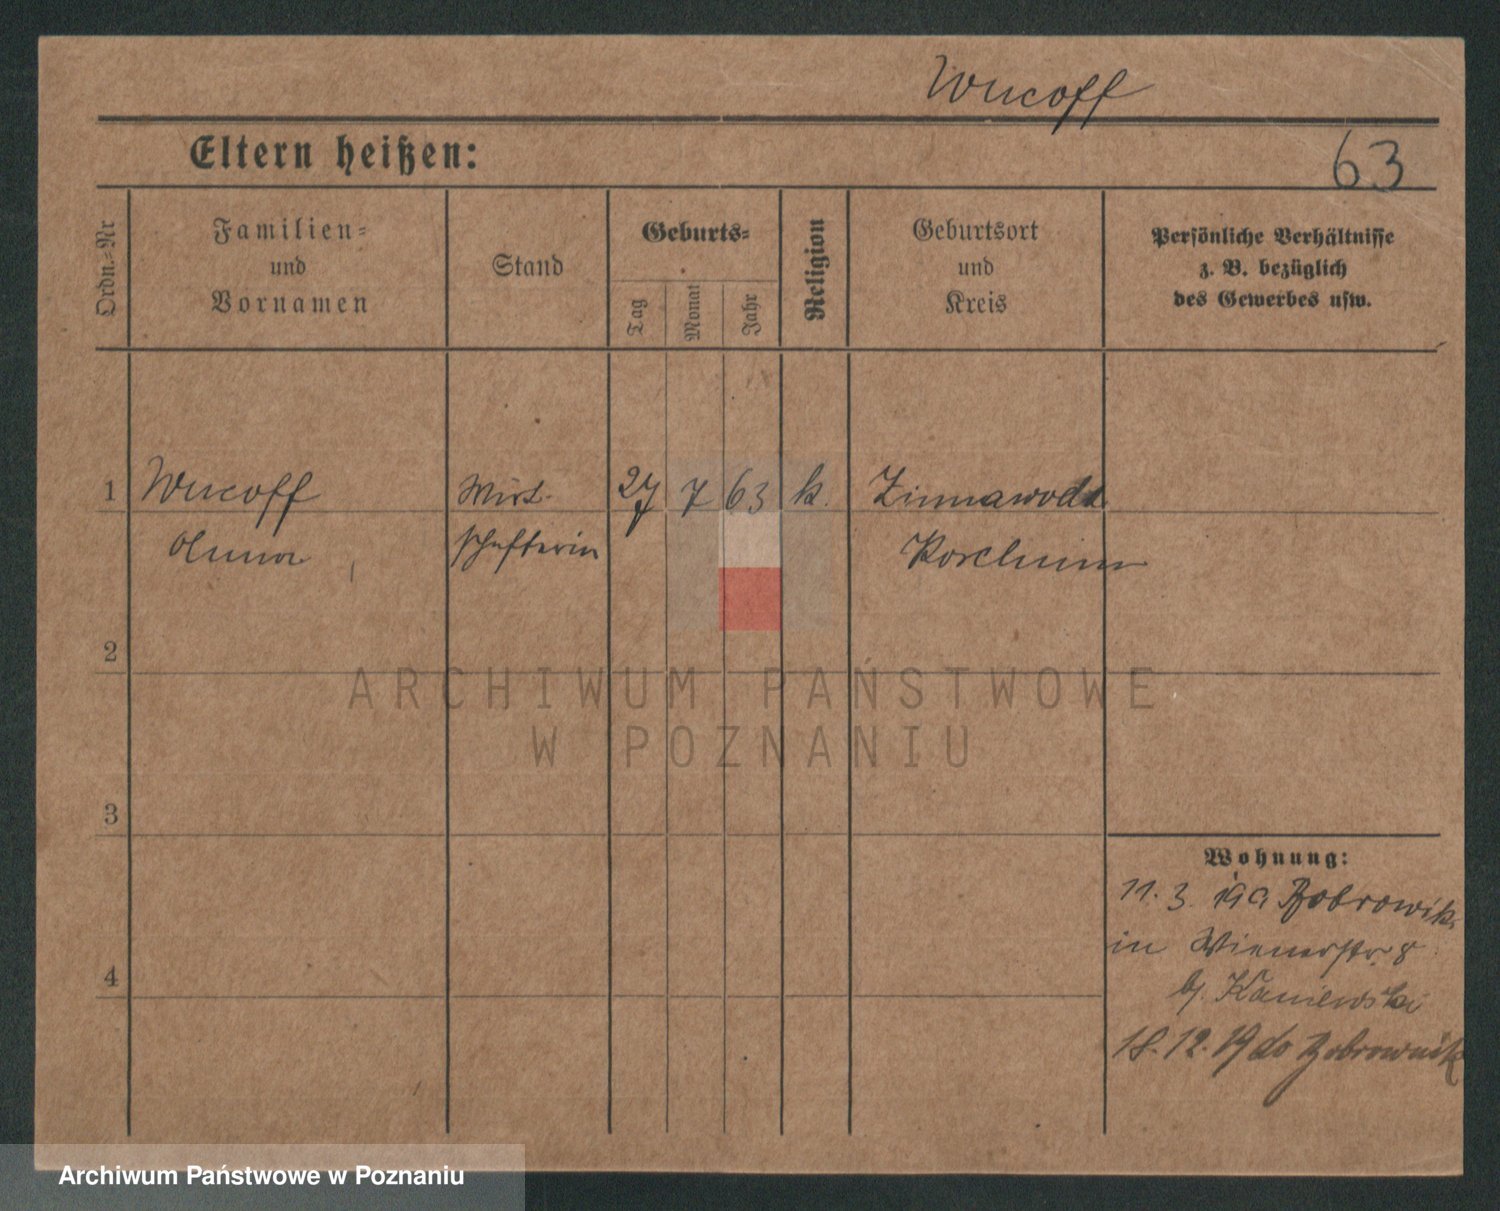 Wucoff
Eltern heißen:
63
Ordn.=Nr
Familien=
und
Vornamen
Stand
Geburts=
Tag
Monat
Jahr
Religion
Geburtsort
und
Kreis
Persönliche Verhältnisse
z. B. bezüglich
des Gewerbes usw.
1
Wucoff Wirt- 27 7 63 k. Zimnawoda
Anna schafterin
2
3
4
Wohnung:
11. 3. Bobrowik
in Wienerstr. 8
b. Kaniewski
18. 12. 19 do Bobrownik
ARCHIWUM PAŃSTWOWE
W POZNANIU
Archiwum Państwowe w Poznaniu